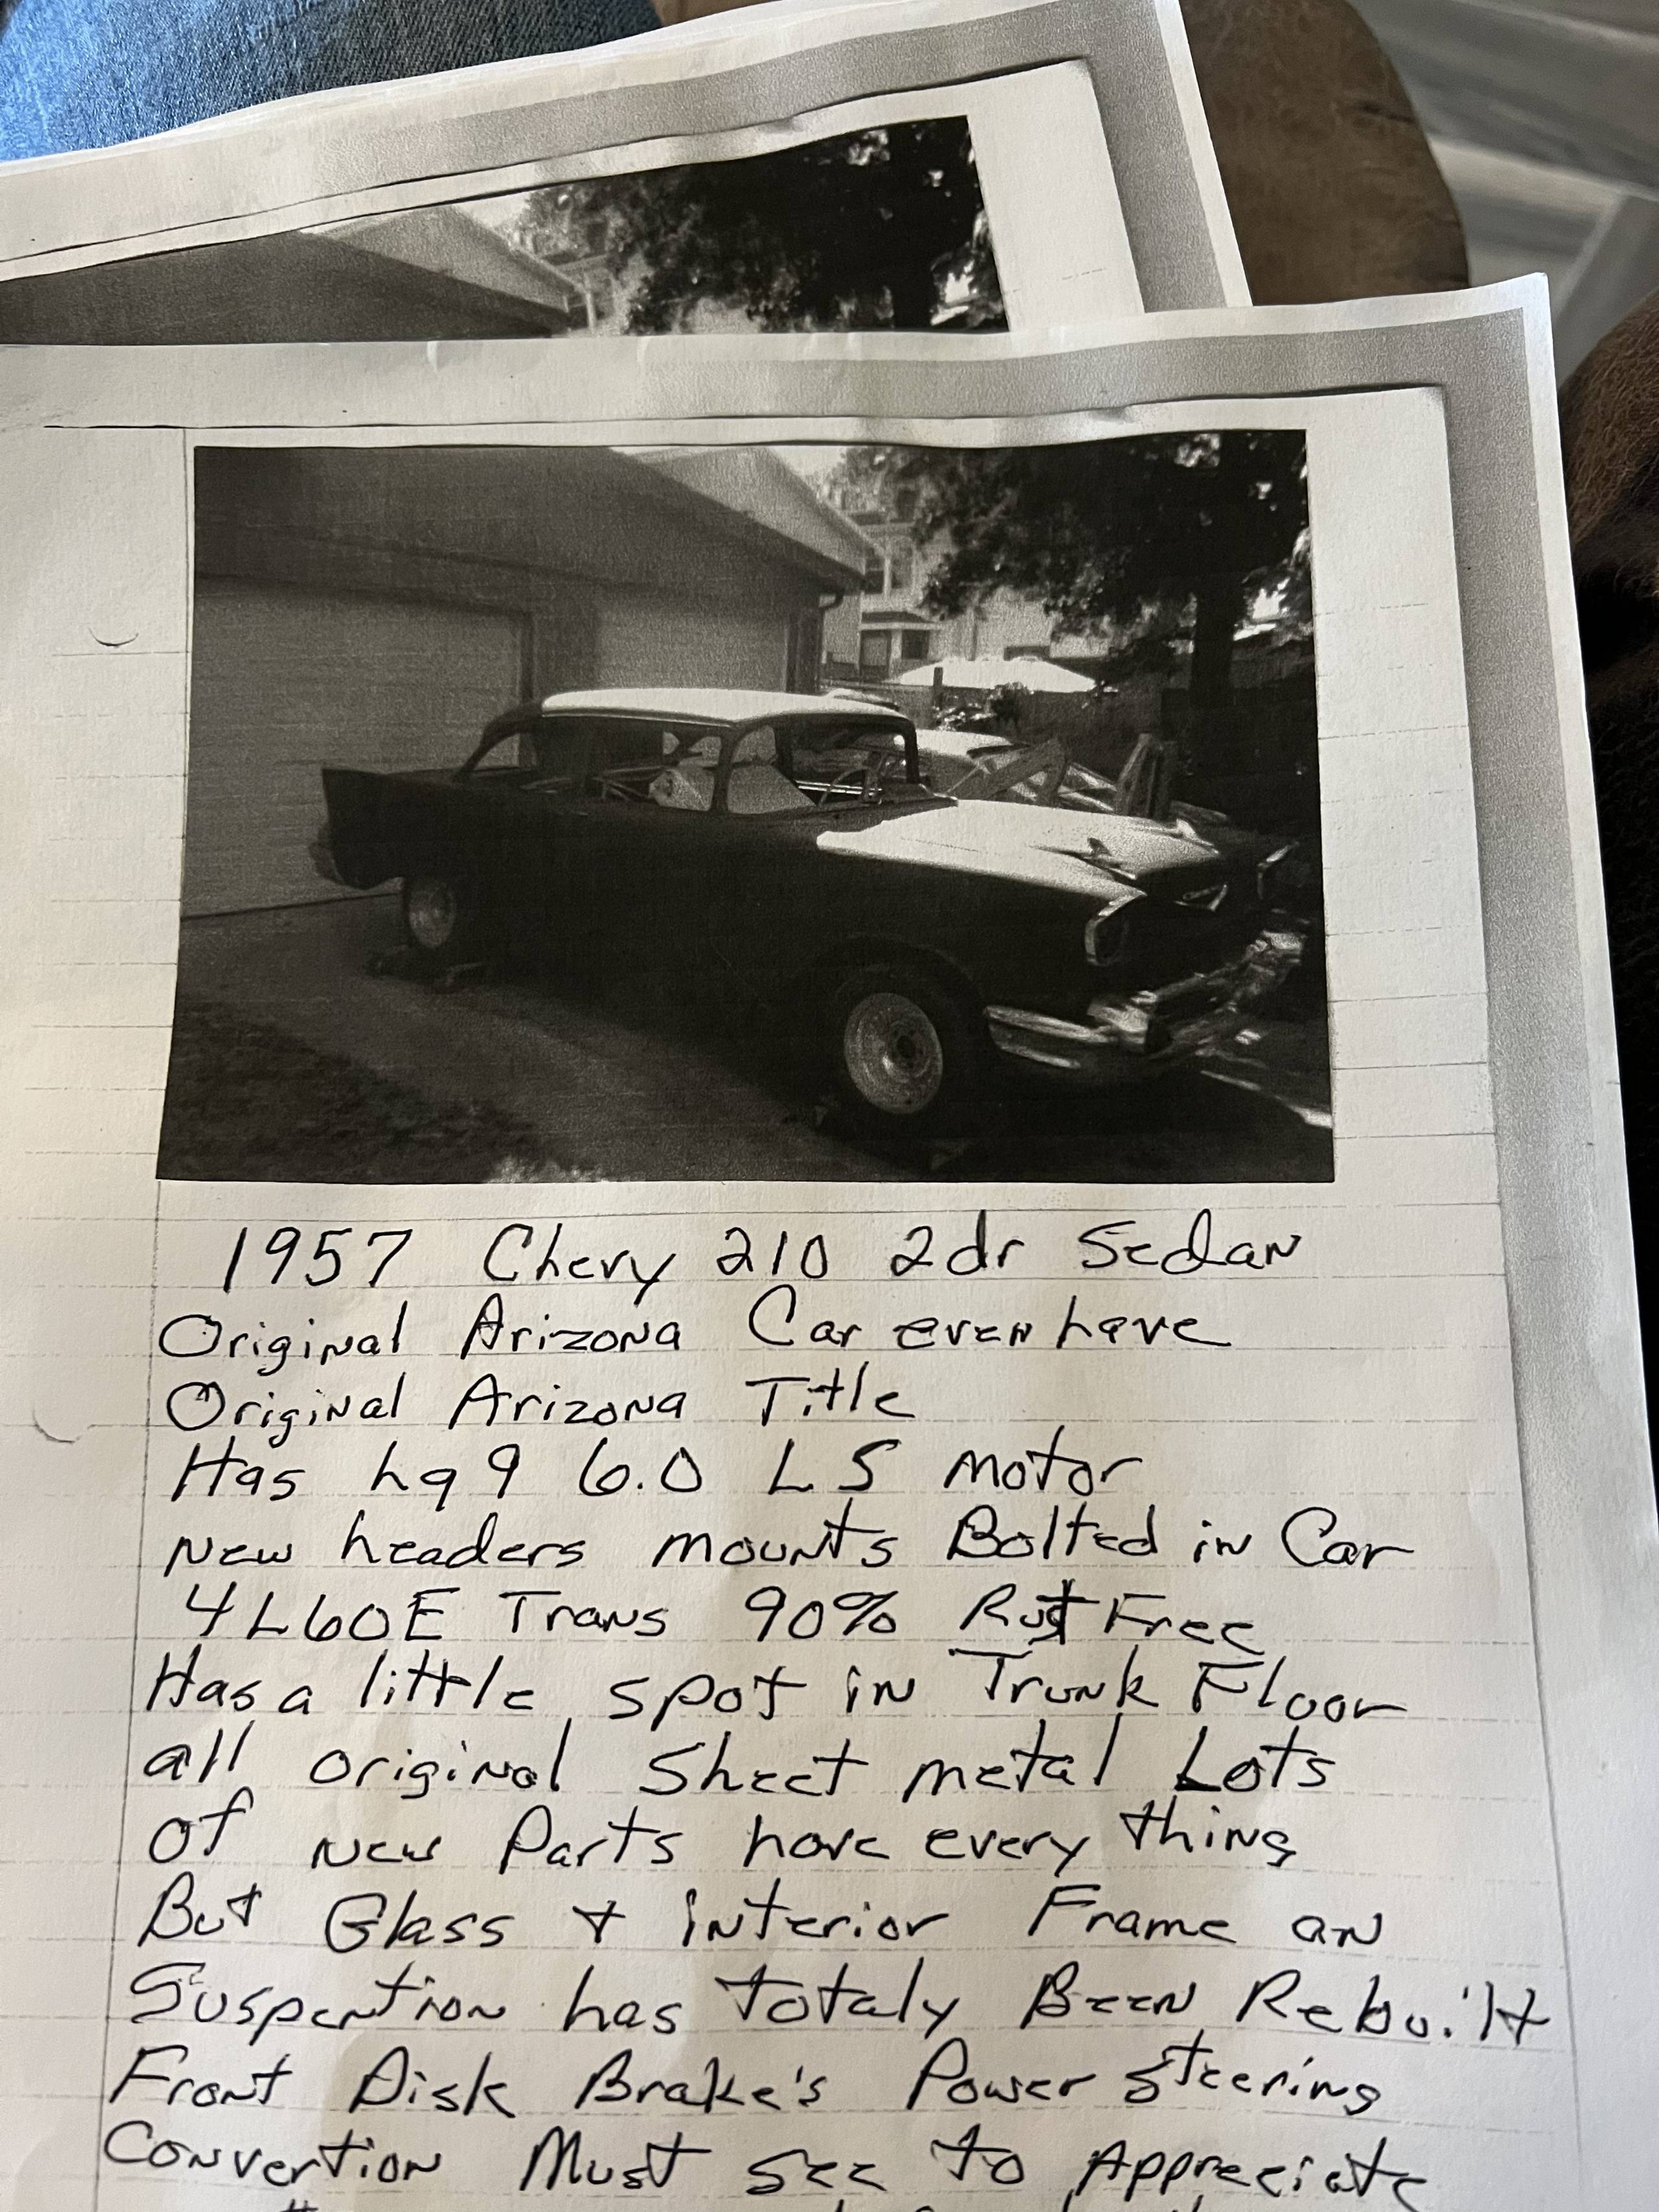 1957 Chevy 210 2dr Sedan
Original Arizona Car even have
Original Arizona Title
Has hq9 6.0 LS motor
new headers mounts Bolted in Car
4L60E Trans 90% Rust Free
Has a little spot in Trunk Floor
all original Sheet metal Lots
of new Parts have every thing
But Glass + interior Frame an
Suspention has totaly Been Rebuilt
Front Disk Brake's Power Steering
Convertion Must see to Appreciate